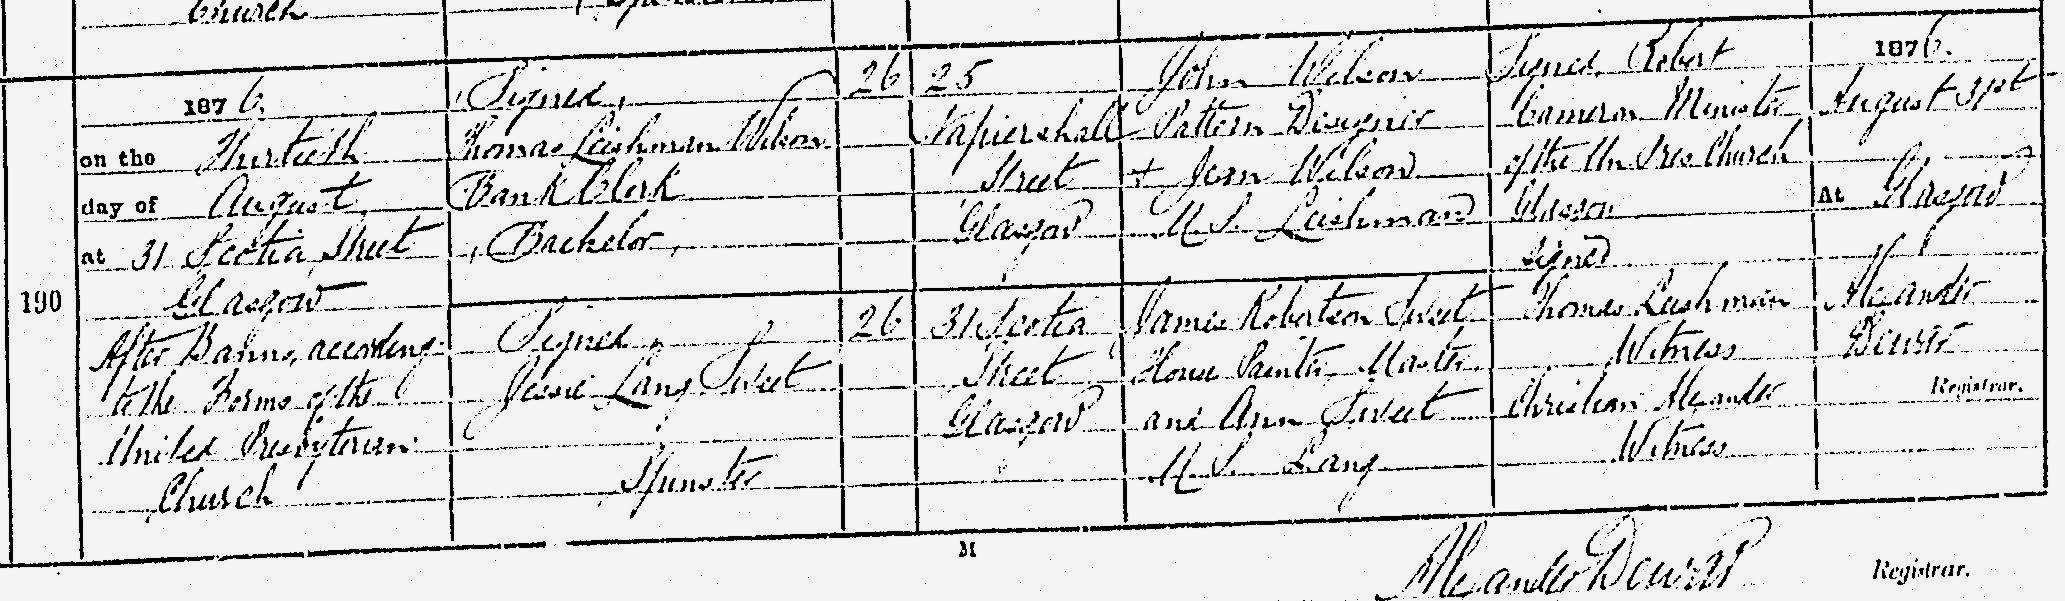 Church
190
1876.
on the Thirtieth
day of August,
at 31 Scotia Street
Glasgow
After Banns, according
to the Forms of the
United Presbyterian
Church
(Signed)
Thomas Leishman Wilson
Bank Clerk
(Bachelor)
Signed
Jessie Lang Sweet
Spinster
26
26
25
Napiershall
Street
Glasgow
31 Scotia
Street
Glasgow
John Wilson
Pattern Designer
+ Jean Wilson
M.S. Leishman
James Robertson Sweet
House Painter, Master
and Ann Sweet
M.S. Lang
Signed Robert
Cameron Minister
of the Un Pres Church
Glasgow
Signed
Thomas Leishman
Witness
Christian Alexander
Witness
1876.
August 31st
At Glasgow
Alexander
Dewar
Registrar.
M
Alexander Dewar
Registrar.